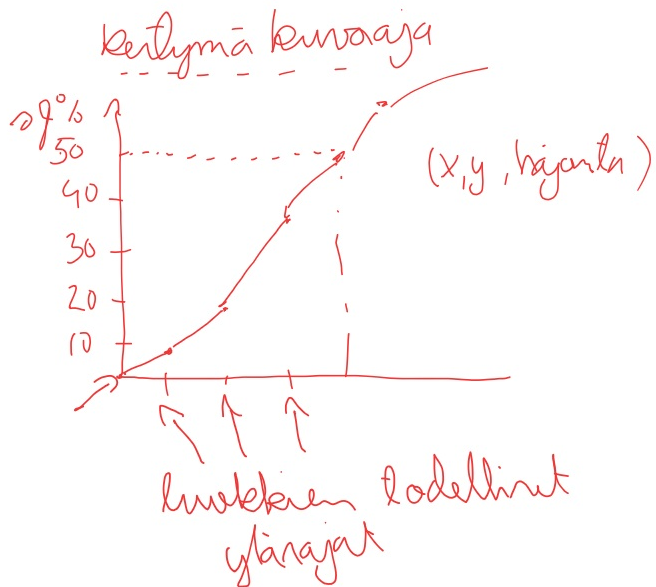 kertymä kuvaaja
sf%
50
40
(x,y, hajonta)
30
20
10
luokkien todelliset
ylärajat